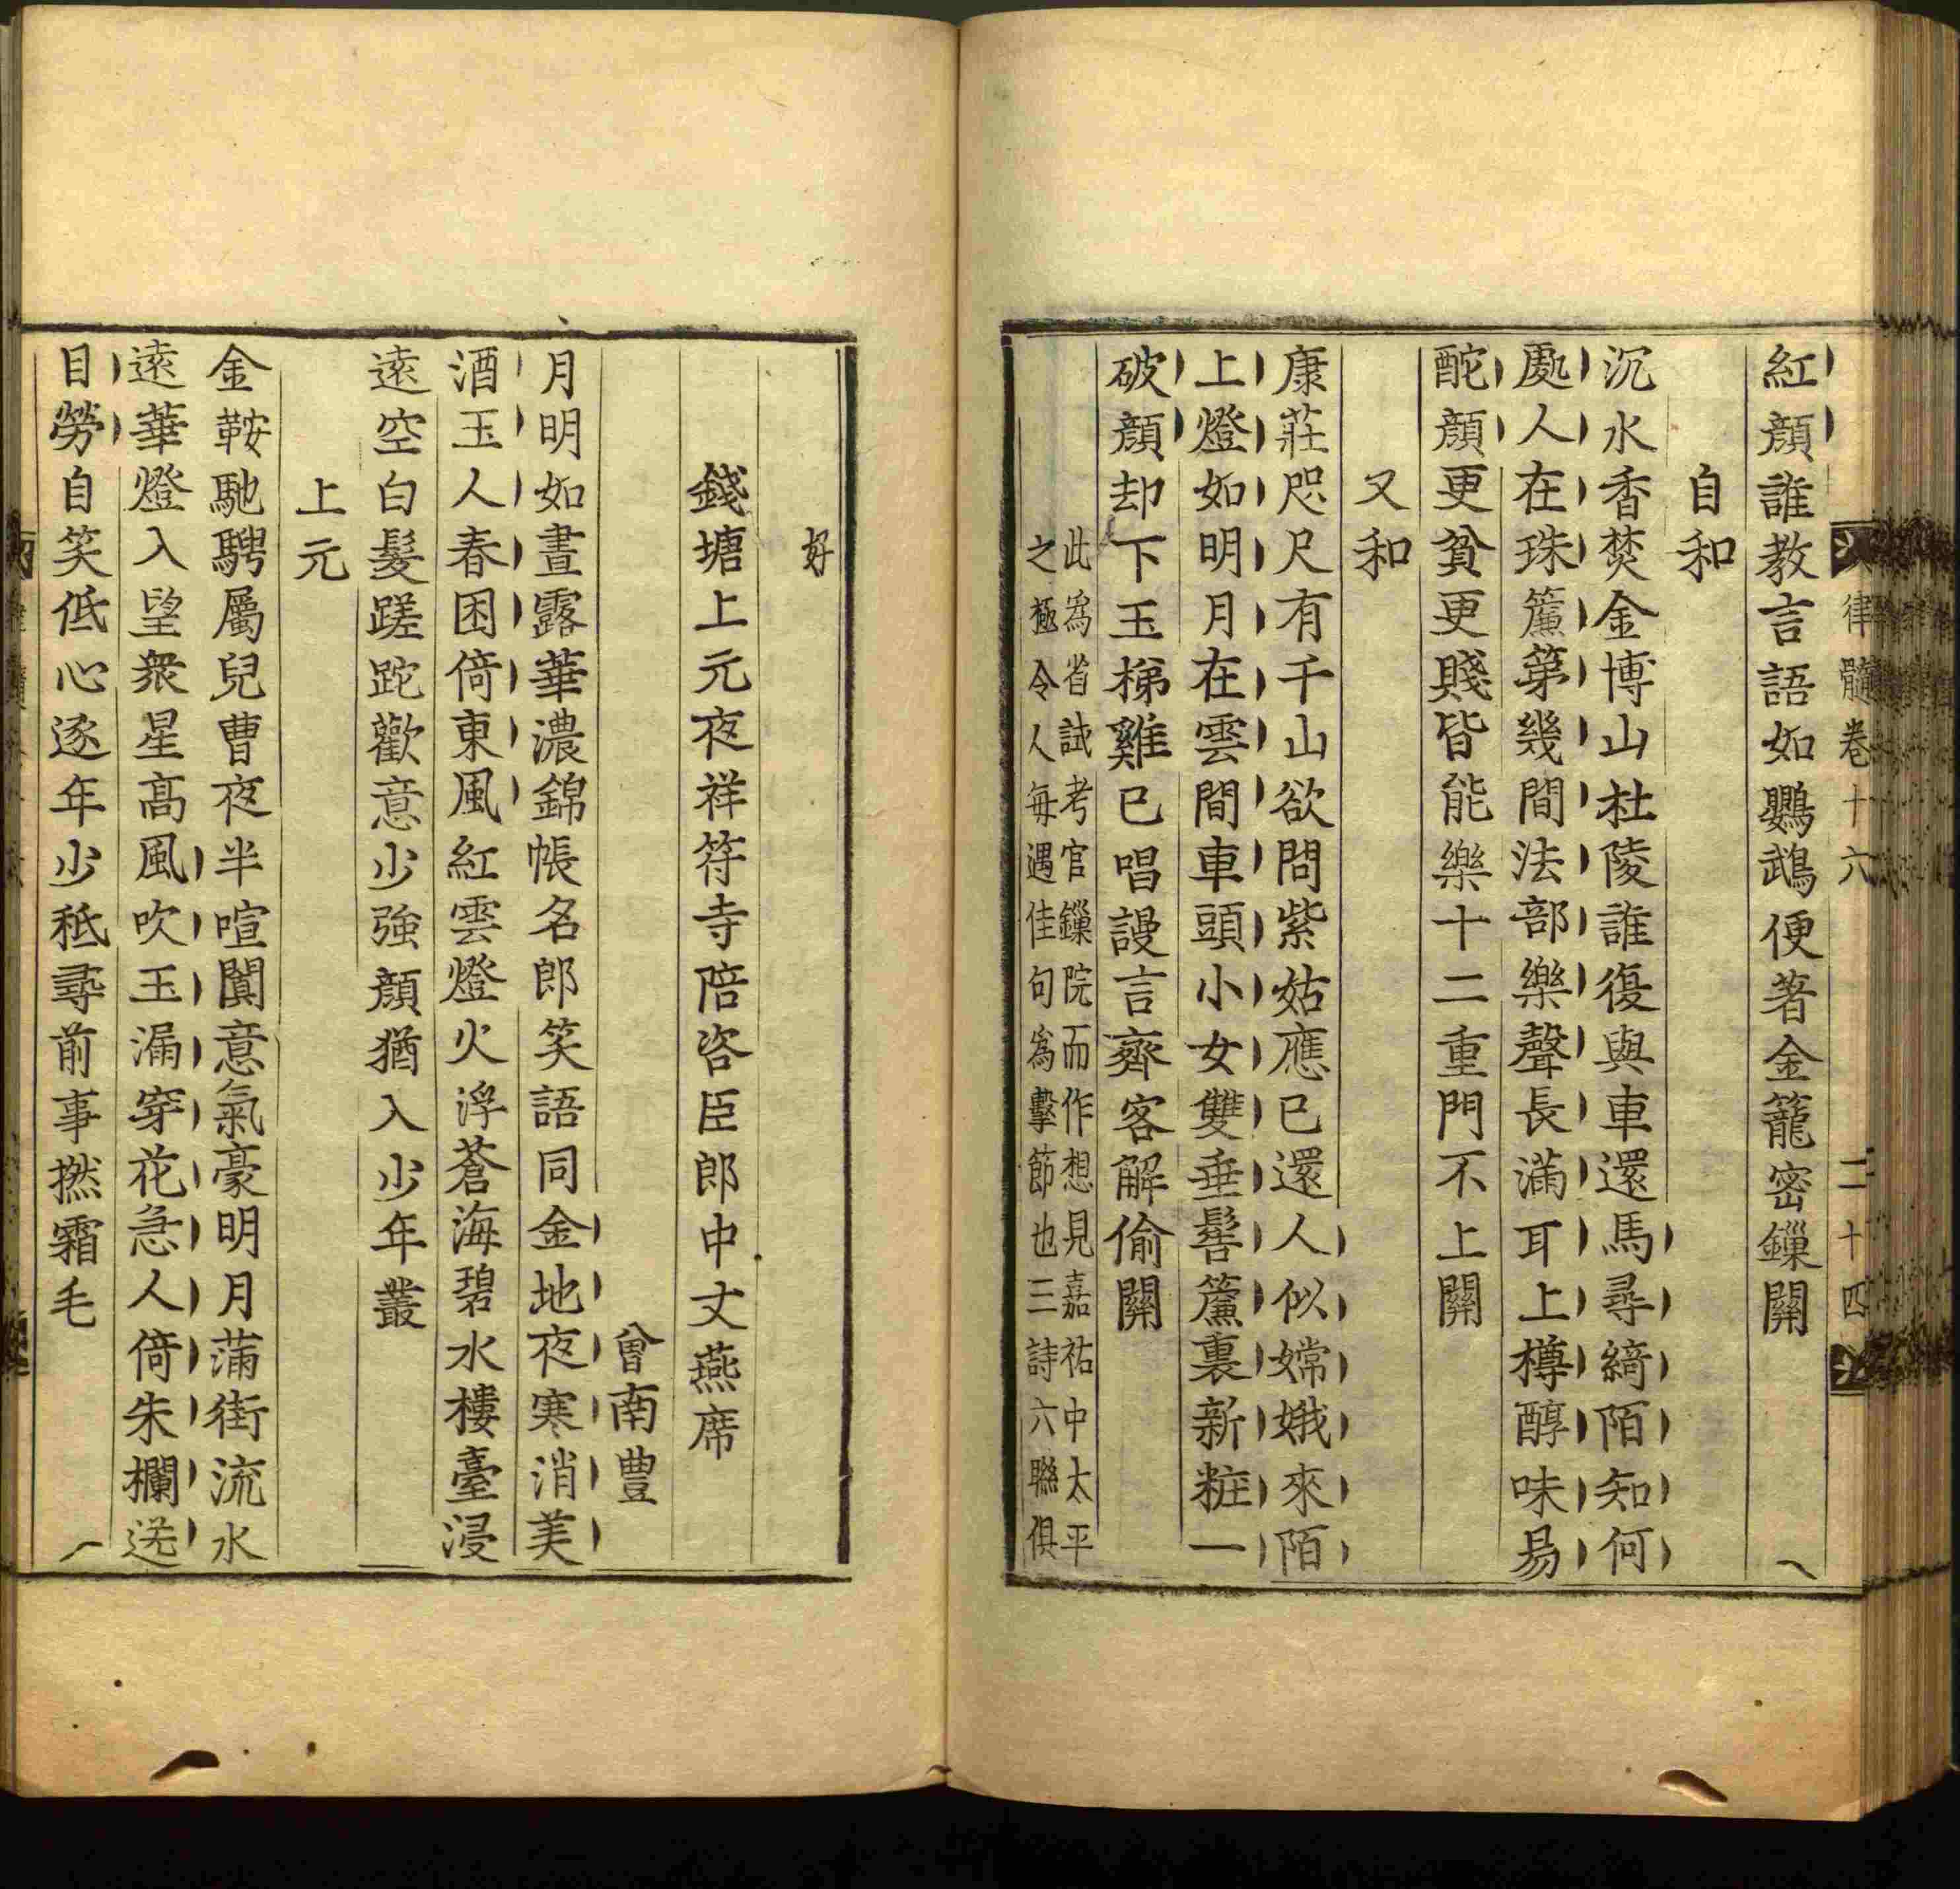 律髓卷十六
二十四
紅顔誰教言語如鸚鵡便著金籠密鏁關
自和
沉水香焚金博山杜陵誰復與車還馬尋綺陌知何
處人在珠簾第幾間法部樂聲長滿耳上樽醇味易
酡顔更貧更賤皆能樂十二重門不上關
又和
康莊咫尺有千山欲問紫姑應已還人似嫦娥來陌
上燈如明月在雲間車頭小女雙垂髻簾裏新粧一
破顔却下玉梯雞已唱謾言齊客解偷關
此爲省試考官鏁院而作想見嘉祐中太平
之極令人每遇佳句爲擊節也三詩六聮俱
好
錢塘上元夜祥符寺陪咨臣郎中丈燕席
曾南豊
月明如晝露華濃錦帳名郎笑語同金地夜寒消美
酒玉人春困倚東風紅雲燈火浮蒼海碧水樓臺浸
遠空白髮蹉跎歡意少強顔猶入少年叢
上元
金鞍馳騁屬兒曹夜半喧闐意氣豪明月滿街流水
遠華燈入望衆星髙風吹玉漏穿花急人倚朱欄送
目勞自笑低心逐年少秪尋前事撚霜毛